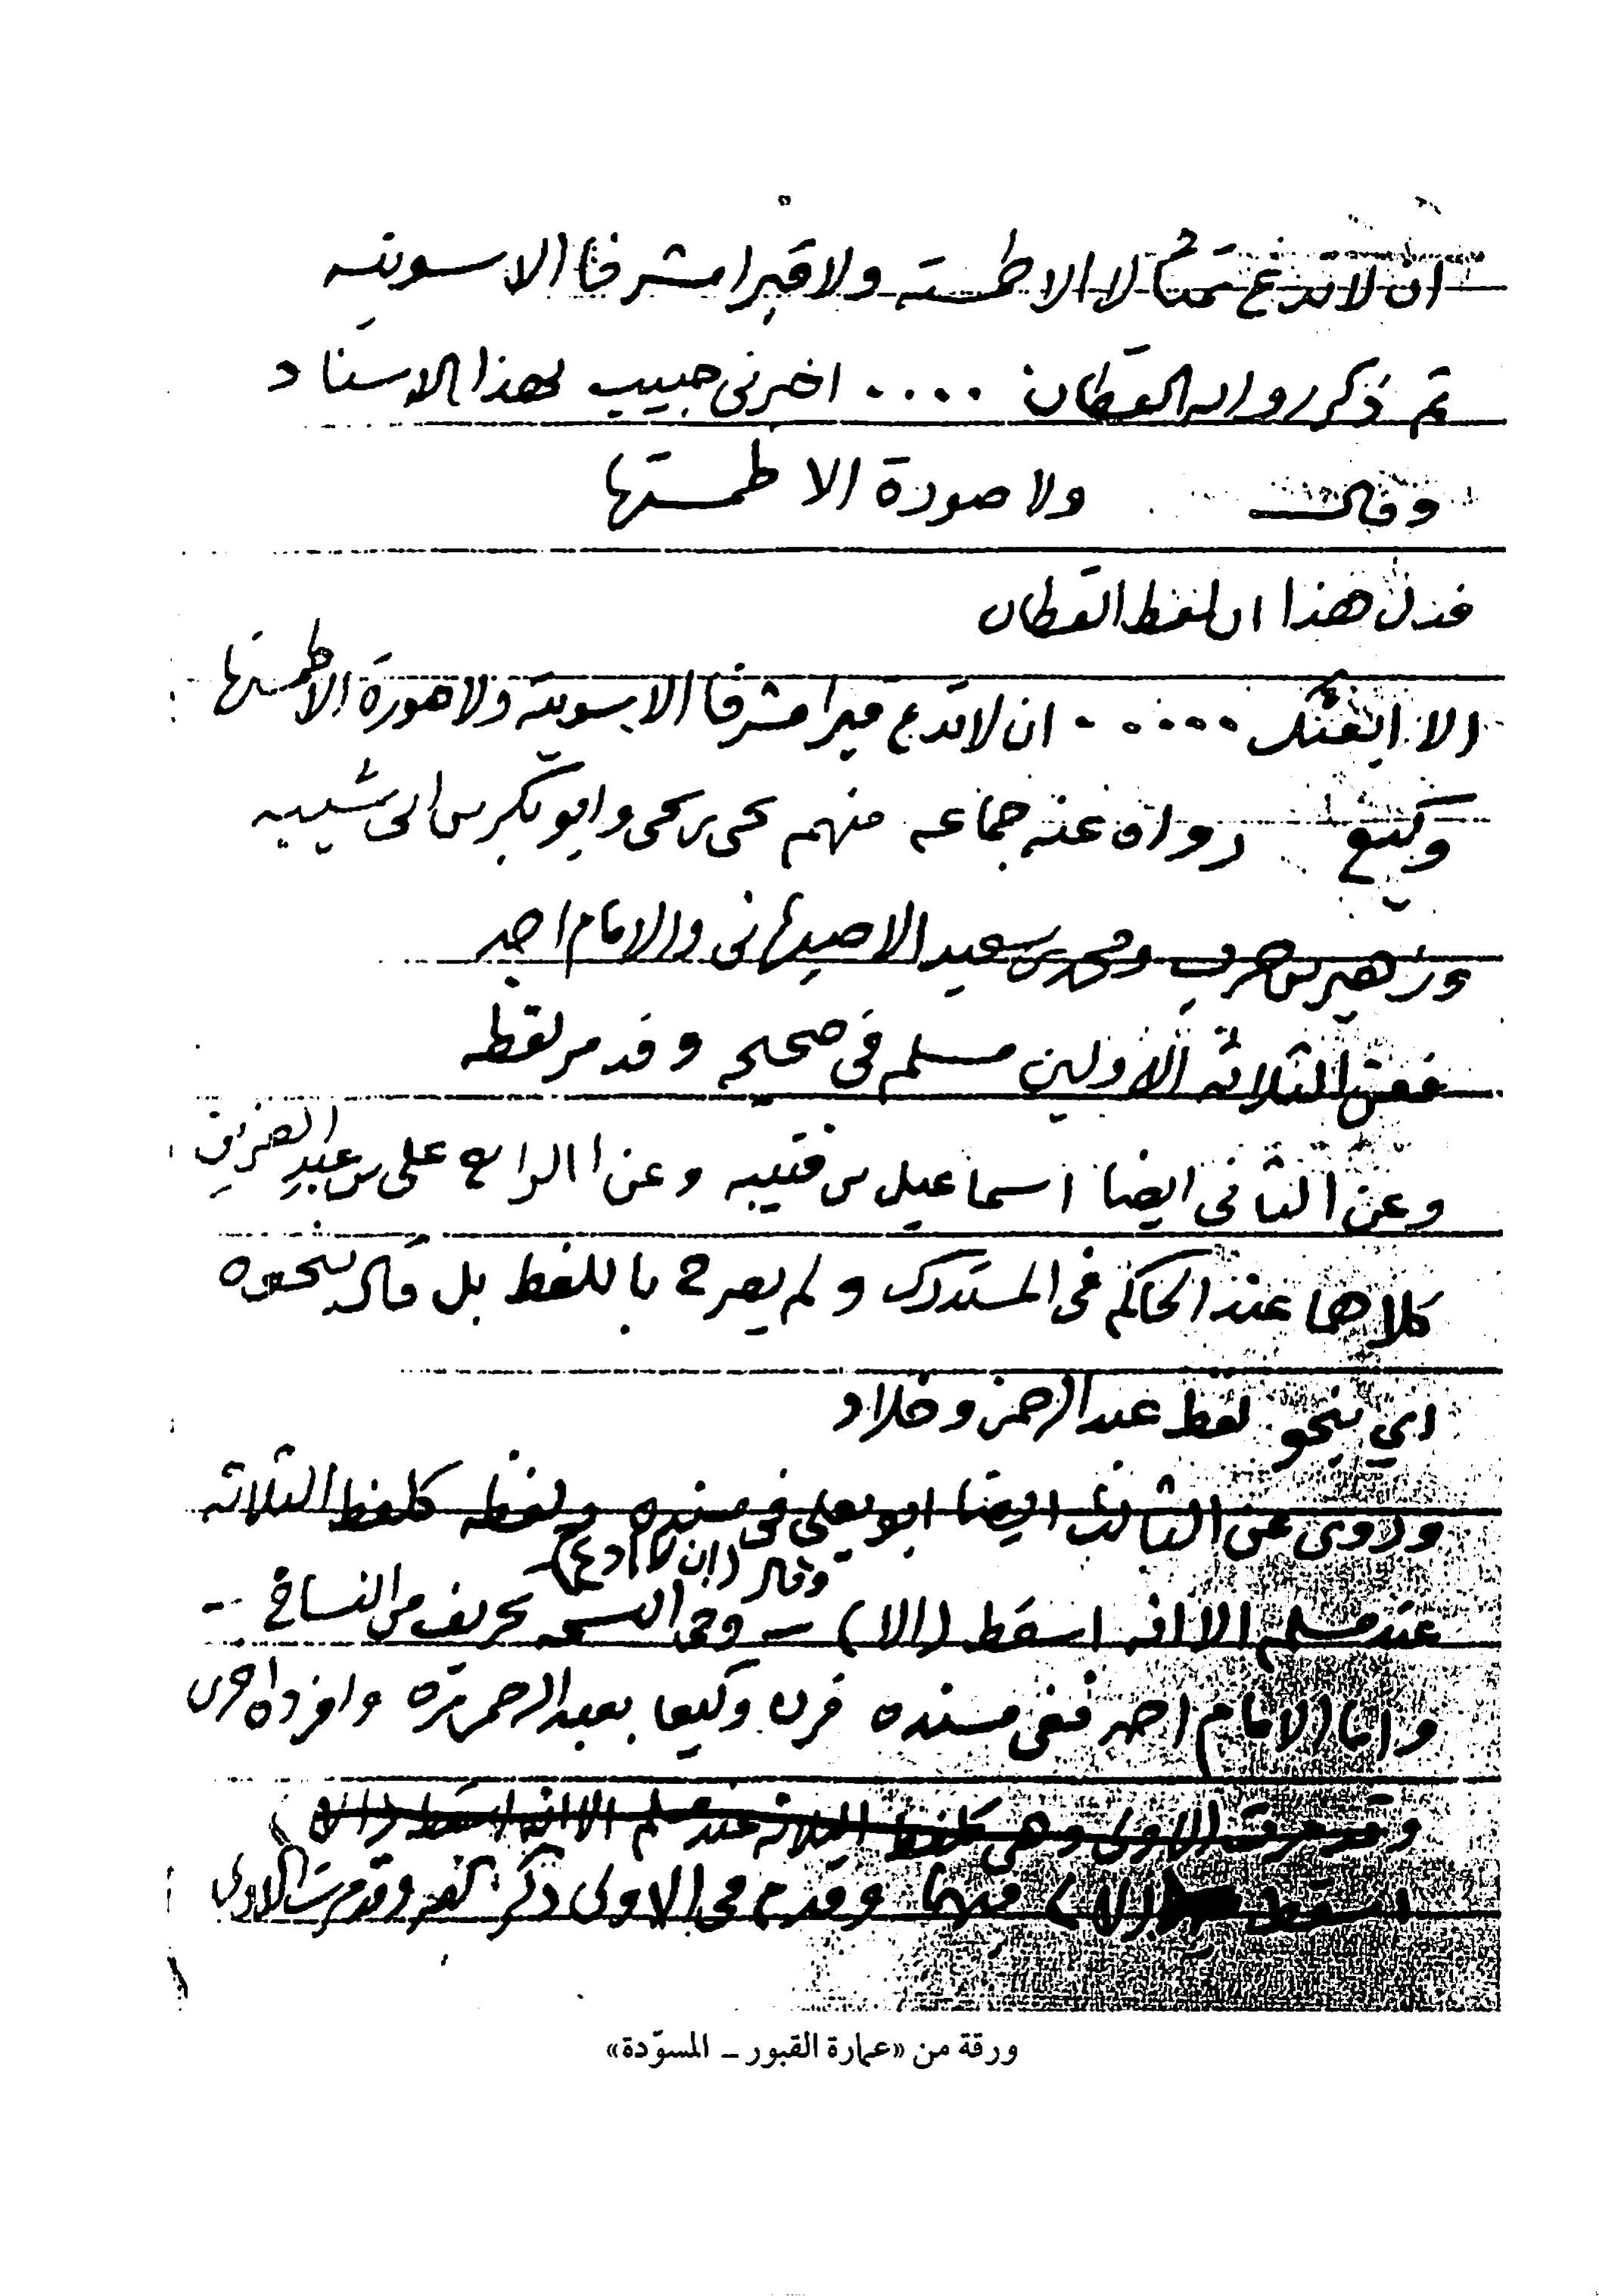 ان لا تدع تمثالا الا طمسته ولا قبرا مشرفا الا سويته
ثم ذكر رواية القطان .... اخبرني حبيب بهذا الاسناد
وقال ولا صورة الا طمستها
فدل هذا ان لفظ القطان
الا ابعثك ..... ان لا تدع قبرا مشرفا الا سويته ولا صورة الا طمستها
وكيع رواه عنه جماعه منهم يحيى بن يحيى وابو بكر بن ابي شيبه
وزهير بن حرب ومحمد بن سعيد الاصبهاني والامام احمد
فعن الثلاثه الاولين مسلم في صحيحه وقد مر لفظه
وعن الثاني ايضا اسماعيل بن قتيبه وعن الرابع علي بن عبد العزيز
كلاهما عند الحاكم في المستدرك ولم يصرح باللفظ بل قال بنحوه
اي بنحو لفظ عبد الرحمن وخلاد
وروى عن الثالث ايضا ابو يعلى في مسنده ولفظه كلفظ الثلاثه
وقال (ان لا ادع)
عند مسلم الا انه اسقط (الا) ـ وفي النسخه تحريف من النساخ ـ
واما الامام احمد ففي مسنده قرن وكيعا بعبد الرحمن مرّه وافرده اخرى
وقد مرت الاولى وهي كلفظ الثلاثه عند مسلم الا انه اسقط (الا)
اسقط (الا) فيهما وقدم في الاولى ذكر القبر وقد مرت الاولى
ورقة من «عمارة القبور ـ المسوّدة»